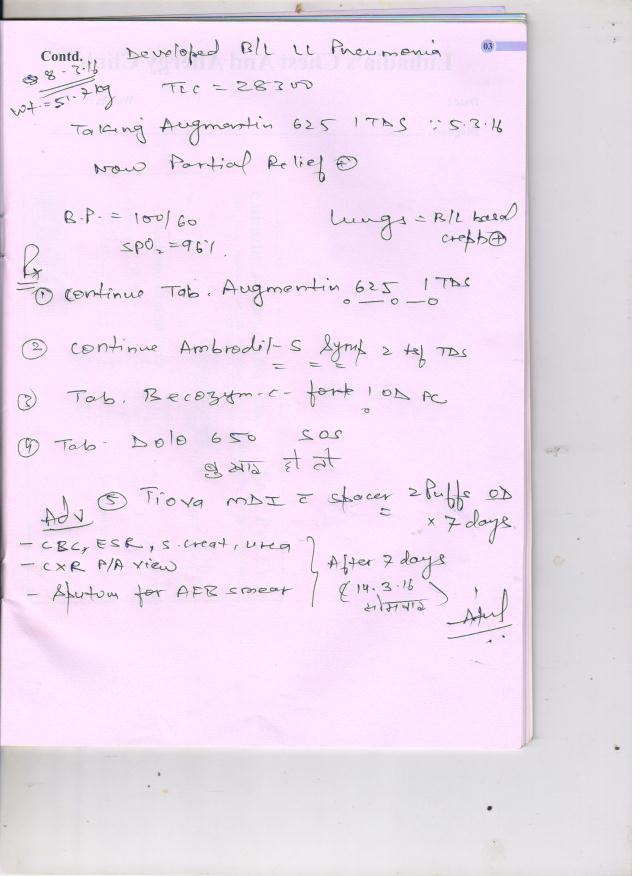 Contd. Developed B/L LL Pneumonia
03
8.3.16
TLC = 28300
wt.=51.7kg
Taking Augmentin 625 1 TDS ∵ 5.3.16
Now Partial Relief ⊕
B.P. = 100/60
Lungs = B/L basal
SPO₂ = 96%.
crepts ⊕
Rx
① continue Tab. Augmentin 625 1 TDS
o — o — o
② continue Ambrodil-S Syrup 2 tsf TDS
③ Tab. Becozym-C-forte 1 OD PC
④ Tab. Dolo 650 SOS
बुखार हो तो
⑤ Tiova MDI c̄ spacer 2 Puffs OD
x 7 days
Adv
- CBC, ESR, S.creat, urea
- CXR P/A view
- Sputum for AFB smear
After 7 days
(14.3.16
सोमवार)